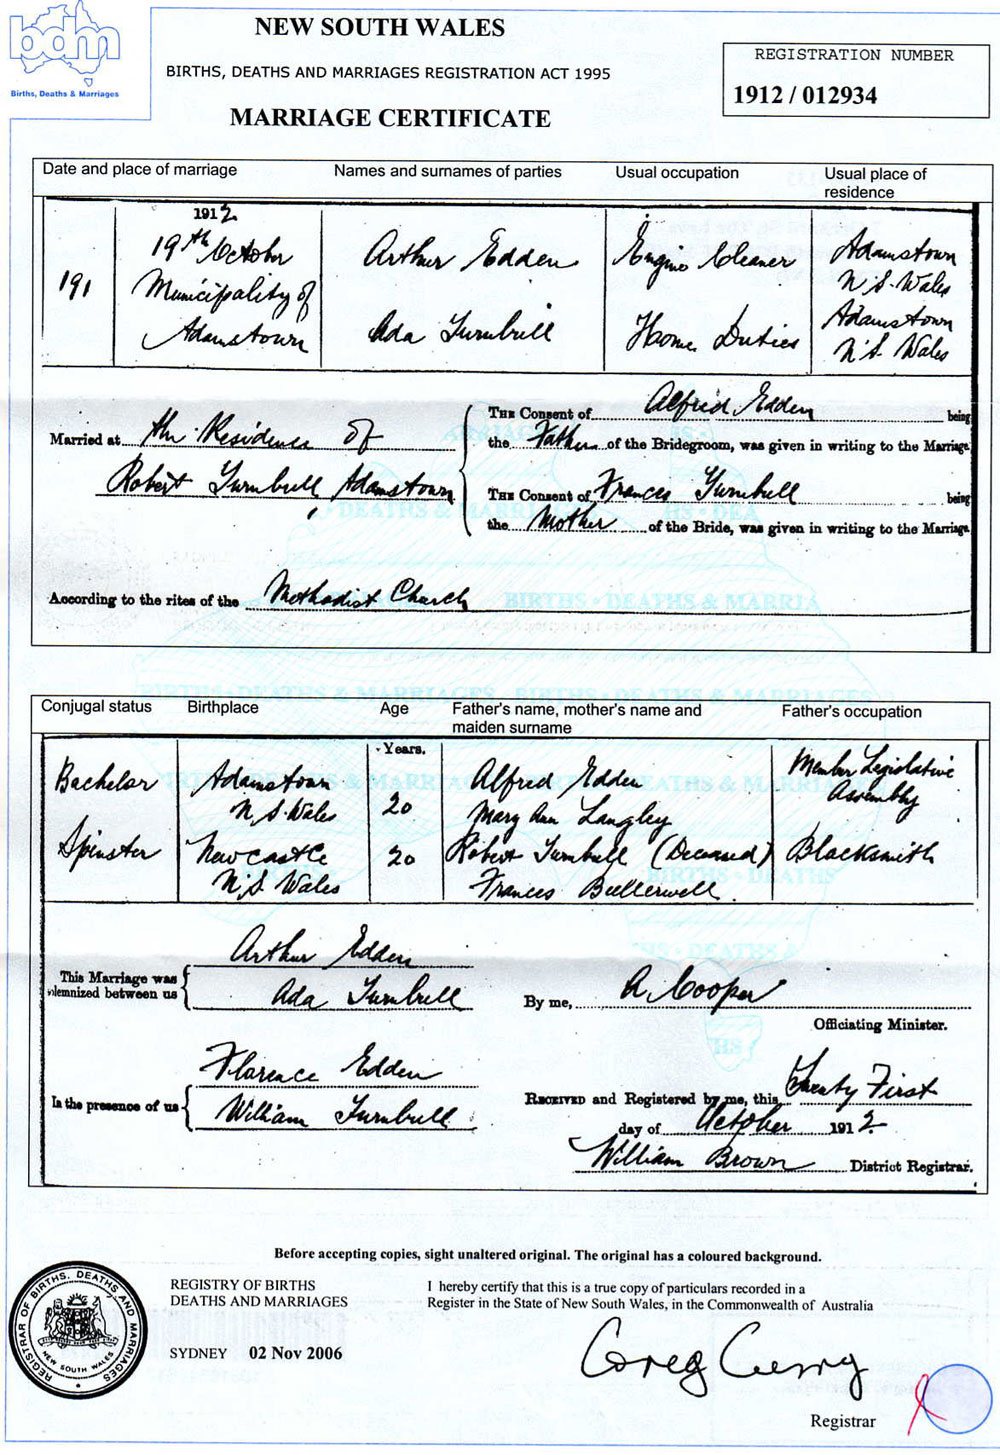 bdm
Births, Deaths & Marriages
NEW SOUTH WALES
BIRTHS, DEATHS AND MARRIAGES REGISTRATION ACT 1995
MARRIAGE CERTIFICATE
REGISTRATION NUMBER
1912 / 012934
Date and place of marriage Names and surnames of parties Usual occupation Usual place of residence
191
1912
19th October
Municipality of
Adamstown
Arthur Edden
Ada Turnbull
Engine Cleaner
Home Duties
Adamstown
N. S. Wales
Adamstown
N. S. Wales
Married at the Residence of
Robert Turnbull, Adamstown
THE Consent of Alfred Edden being
the Father of the Bridegroom, was given in writing to the Marriage
THE Consent of Frances Turnbull being
the Mother of the Bride, was given in writing to the Marriage
According to the rites of the Methodist Church
Conjugal status Birthplace Age Father's name, mother's name and maiden surname Father's occupation
Years.
Bachelor
Adamstown
N. S. Wales
20
Alfred Edden
Mary Ann Langley
Member Legislative
Assembly
Spinster
Newcastle
N. S. Wales
20
Robert Turnbull (Deceased)
Frances Bullerwell
Blacksmith
This Marriage was
solemnized between us
Arthur Edden
Ada Turnbull
By me, A Cooper
Officiating Minister.
In the presence of us
Florence Edden
William Turnbull
RECEIVED and Registered by me, this Twenty First
day of October 1912
William Brown District Registrar.
Before accepting copies, sight unaltered original. The original has a coloured background.
REGISTRAR OF BIRTHS, DEATHS AND MARRIAGES
NEW SOUTH WALES
REGISTRY OF BIRTHS
DEATHS AND MARRIAGES
SYDNEY 02 Nov 2006
I hereby certify that this is a true copy of particulars recorded in a
Register in the State of New South Wales, in the Commonwealth of Australia
Greg Curry
Registrar